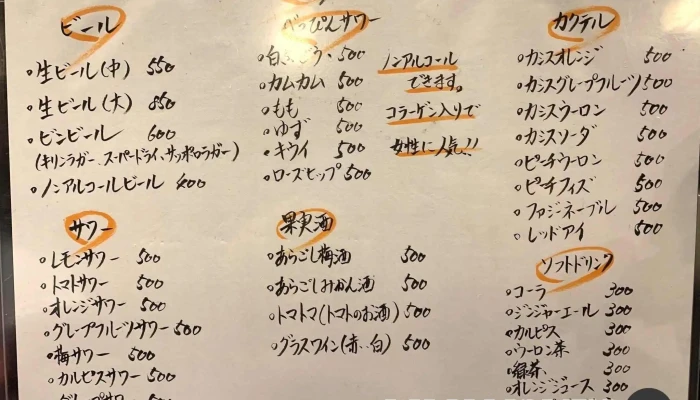 ビール
・生ビール(中) 550
・生ビール(大) 850
・ビンビール 600
(キリンラガー、スーパードライ、サッポロラガー)
・ノンアルコールビール 400
べっぴんサワー
・白ぶどう 500
・カムカム 500
・もも 500
・ゆず 500
・キウイ 500
・ローズヒップ 500
ノンアルコール
できます。
コラーゲン入りで
女性に人気!!
カクテル
・カシスオレンジ 500
・カシスグレープフルーツ 500
・カシスウーロン 500
・カシスソーダ 500
・ピーチウーロン 500
・ピーチフィズ 500
・ファジーネーブル 500
・レッドアイ 500
サワー
・レモンサワー 500
・トマトサワー 500
・オレンジサワー 500
・グレープフルーツサワー 500
・梅サワー 500
・カルピスサワー 500
果実酒
・あらごし梅酒 500
・あらごしみかん酒 500
・トマトマ(トマトのお酒) 500
・グラスワイン(赤・白) 500
ソフトドリンク
・コーラ 300
・ジンジャーエール 300
・カルピス 300
・ウーロン茶 300
・緑茶 300
・オレンジジュース 300